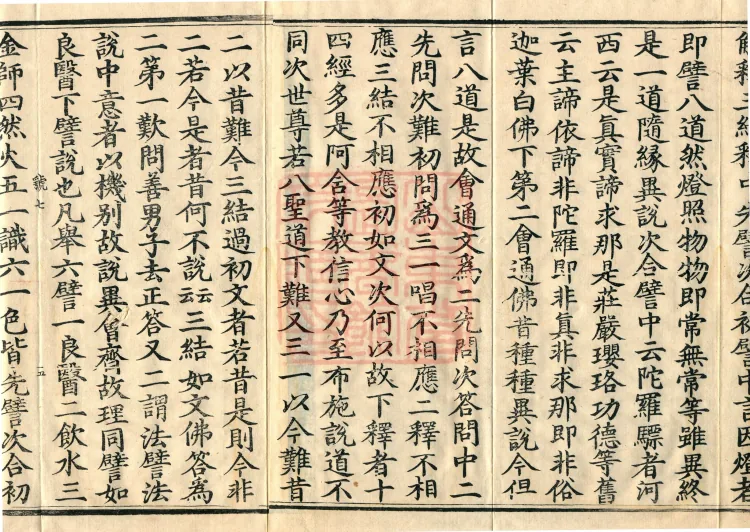 解釋二經釋中先譬次合初譬中言因燈者
即譬八道然燈照物物即常無常等雖異終
是一道隨緣異說次合譬中云陀羅驃者河
西云是真實諦求那是莊嚴瓔珞功德等舊
云主諦依諦非陀羅即非真非求那即非俗
迦葉白佛下第二會通佛昔種種異說今但
言八道是故會通文為二先問次答問中二
先問次難初問為三一唱不相應二釋不相
應三結不相應初如文次何以故下釋者十
四經多是阿含等教信心乃至布施說道不
同次世尊若八聖道下難又三一以今難昔
二以昔難今三結過初文者若昔是則今非
二若今是者昔何不說云云三結如文佛答為
二第一歎問善男子去正答又二謂法譬法
說中意者以機別故說異會齊故理同譬如
良醫下譬說也凡舉六譬一良醫二飲水三
號七
五
金師四然火五一識六一色皆先譬次合初